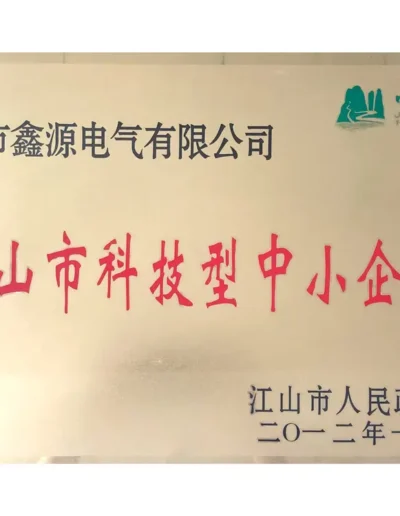 市鑫源电气有限公司
山市科技型中小企
江山市人民政
二〇一二年一